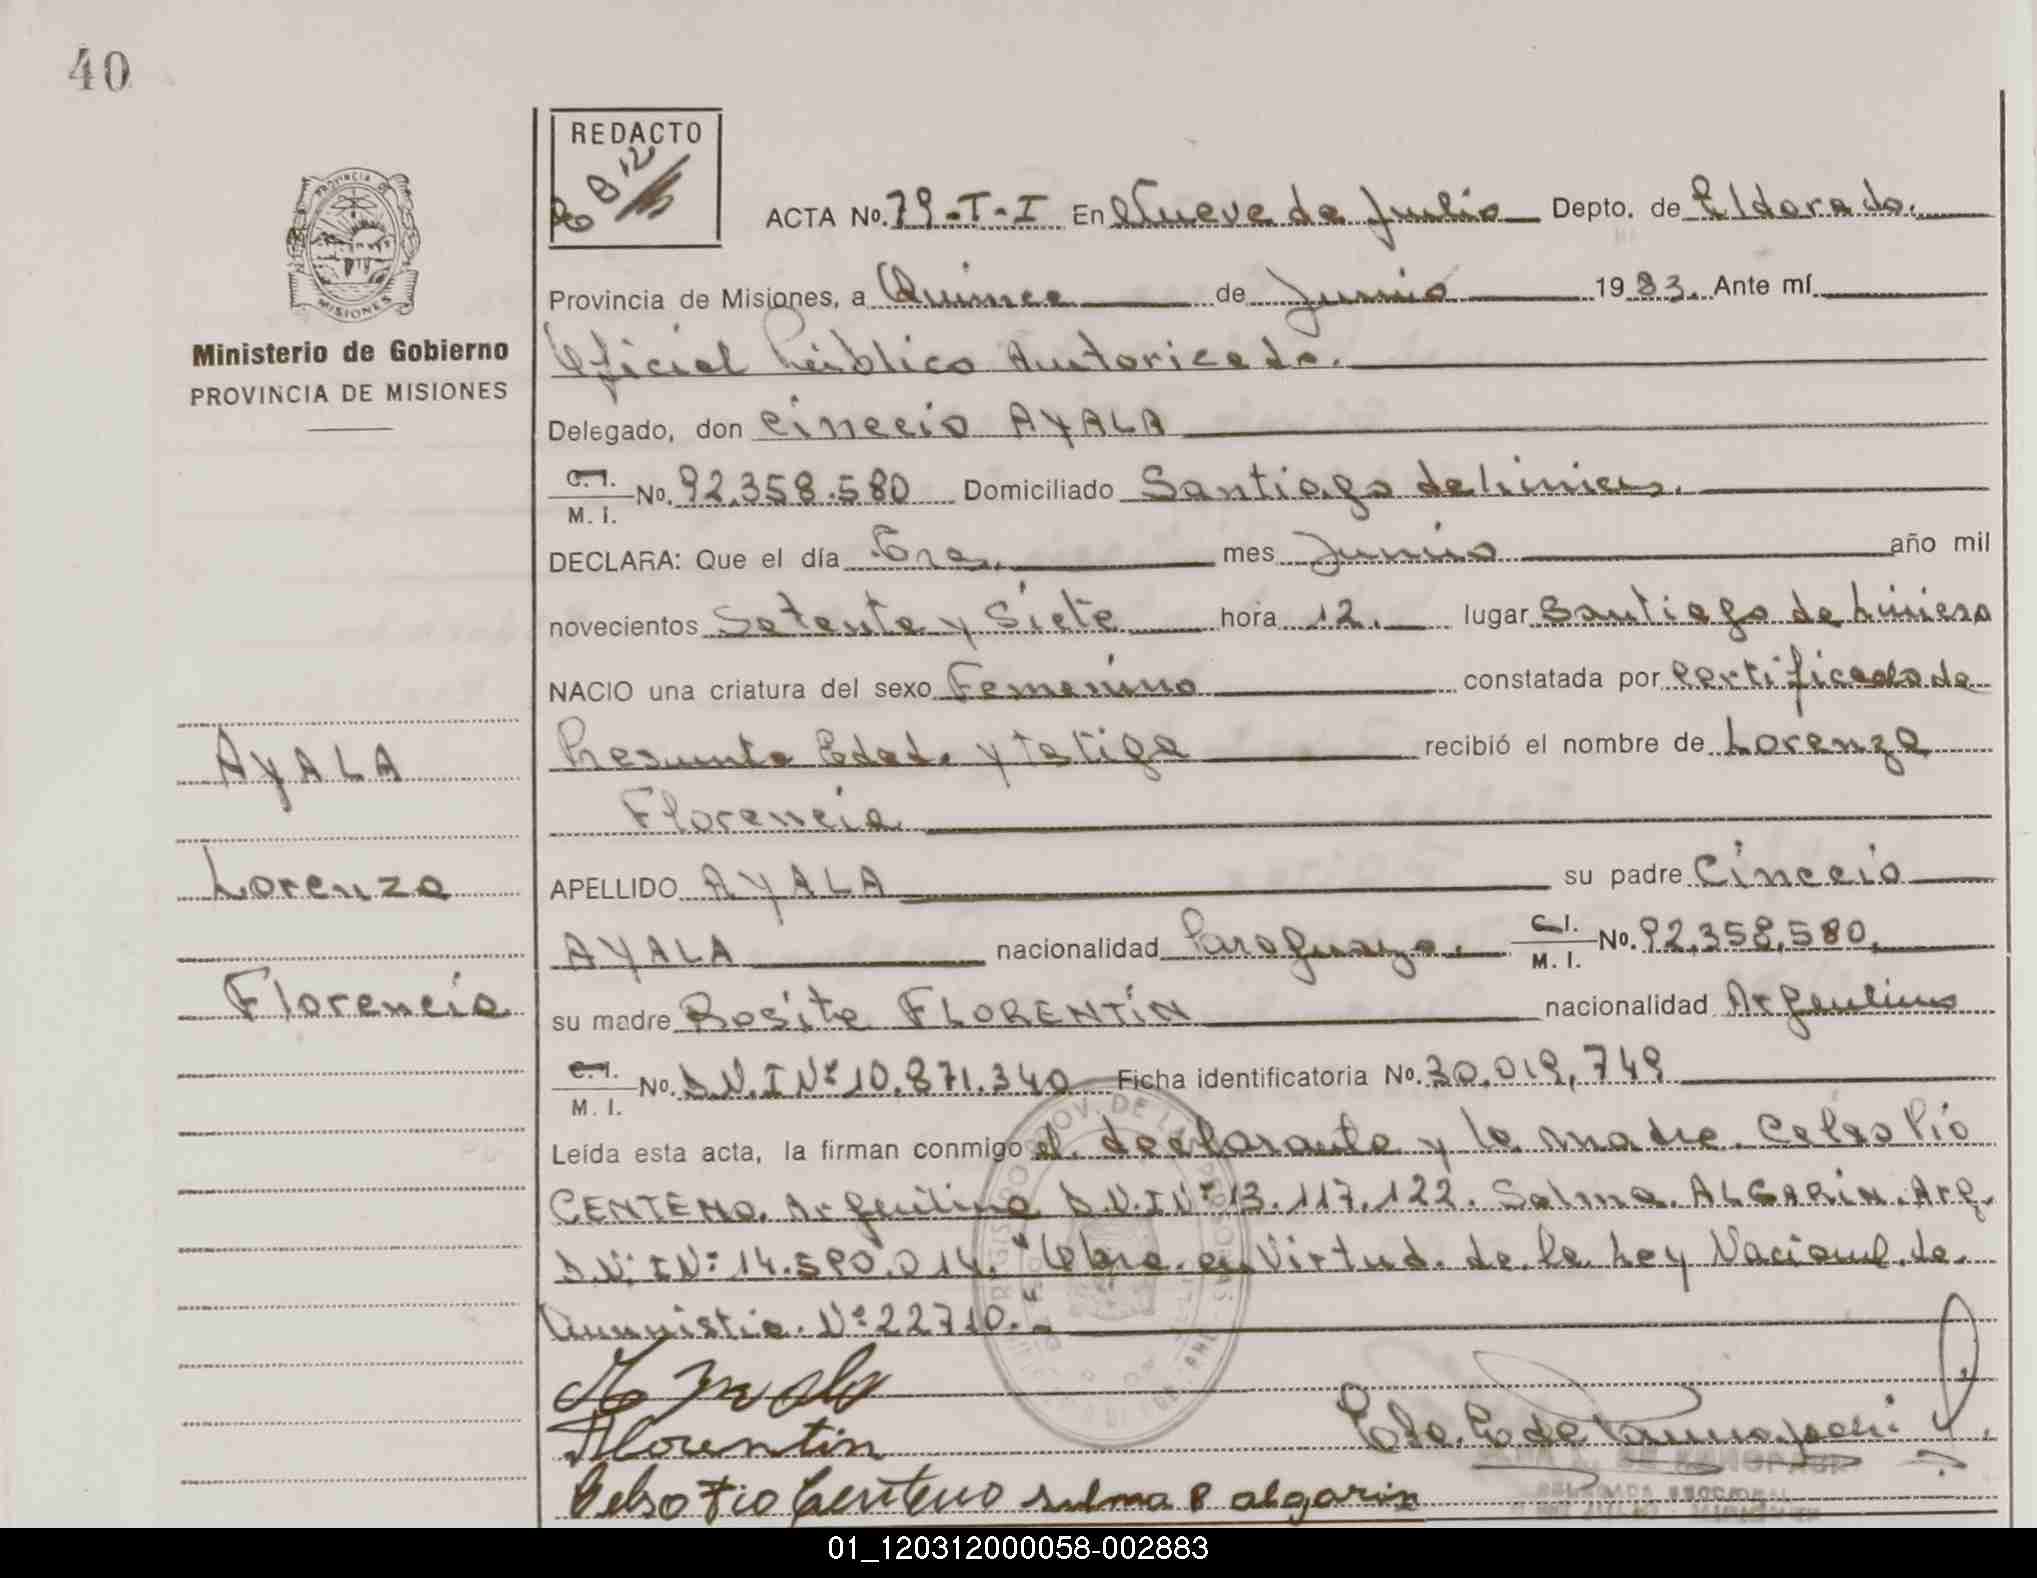 40
REDACTO
ACTA No. 79-T-I En Nueve de Julio Depto. de Eldorado.
Provincia de Misiones, a Quince de Junio 1983. Ante mí
Oficial Público Autorizado.
Ministerio de Gobierno
PROVINCIA DE MISIONES
Delegado, don Cinecio AYALA
C. I.
M. I. No. 92.358.580 Domiciliado Santiago de Liniers.
DECLARA: Que el día Tres. mes Junio año mil
novecientos Setenta y Siete hora 12. lugar Santiago de Liniers
NACIO una criatura del sexo Femenino constatada por Certificado de
Presunta Edad. y testigo recibió el nombre de Lorenza
Florencia
AYALA
Lorenza
Florencia
APELLIDO AYALA su padre Cinecio
AYALA nacionalidad Paraguaya. C. I.
M. I. No. 92.358.580.
su madre Rosita FLORENTÍN nacionalidad Argentina
C. I.
M. I. No. D.N.I Nº 10.871.340 Ficha identificatoria No. 30.019.749
Leída esta acta, la firman conmigo el declarante y la madre. Celso Pío
CENTENO. Argentino D.N.I Nº 13.117.122. Selma. ALGARIN. Arg.
D.N.I Nº 14.590.014. "Obra en Virtud. de la Ley Nacional de
Amnistia. Nº 22710."
Florentin
Celso Pio Centeno selma e algarin
01_120312000058-002883